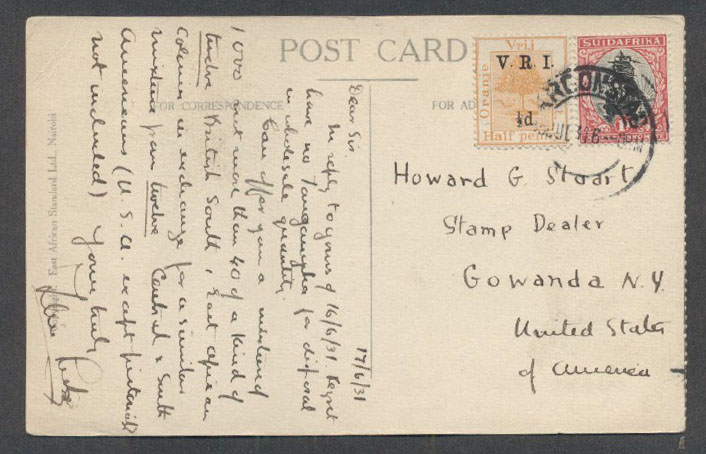 POST CARD
FOR CORRESPONDENCE
FOR AD
East African Standard Ltd., Nairobi
17/6/31
Dear Sir.
In reply to yours of 16/6/31 Regret
have no Tanganyika for disposal
in wholesale quantity.
Can offer you a mixture of
1000 not more than 40 of a kind of
twelve British South, East African
Colonies in exchange for a similar
mixture from twelve Central & South
Americans (U.S.A. except pictorials
not included) Yours truly
Vrij
Oranje
V.R.I.
½d
Half pen
SUIDAFRIKA
Howard G. Stuart
Stamp Dealer
Gowanda N.Y.
United States
of America